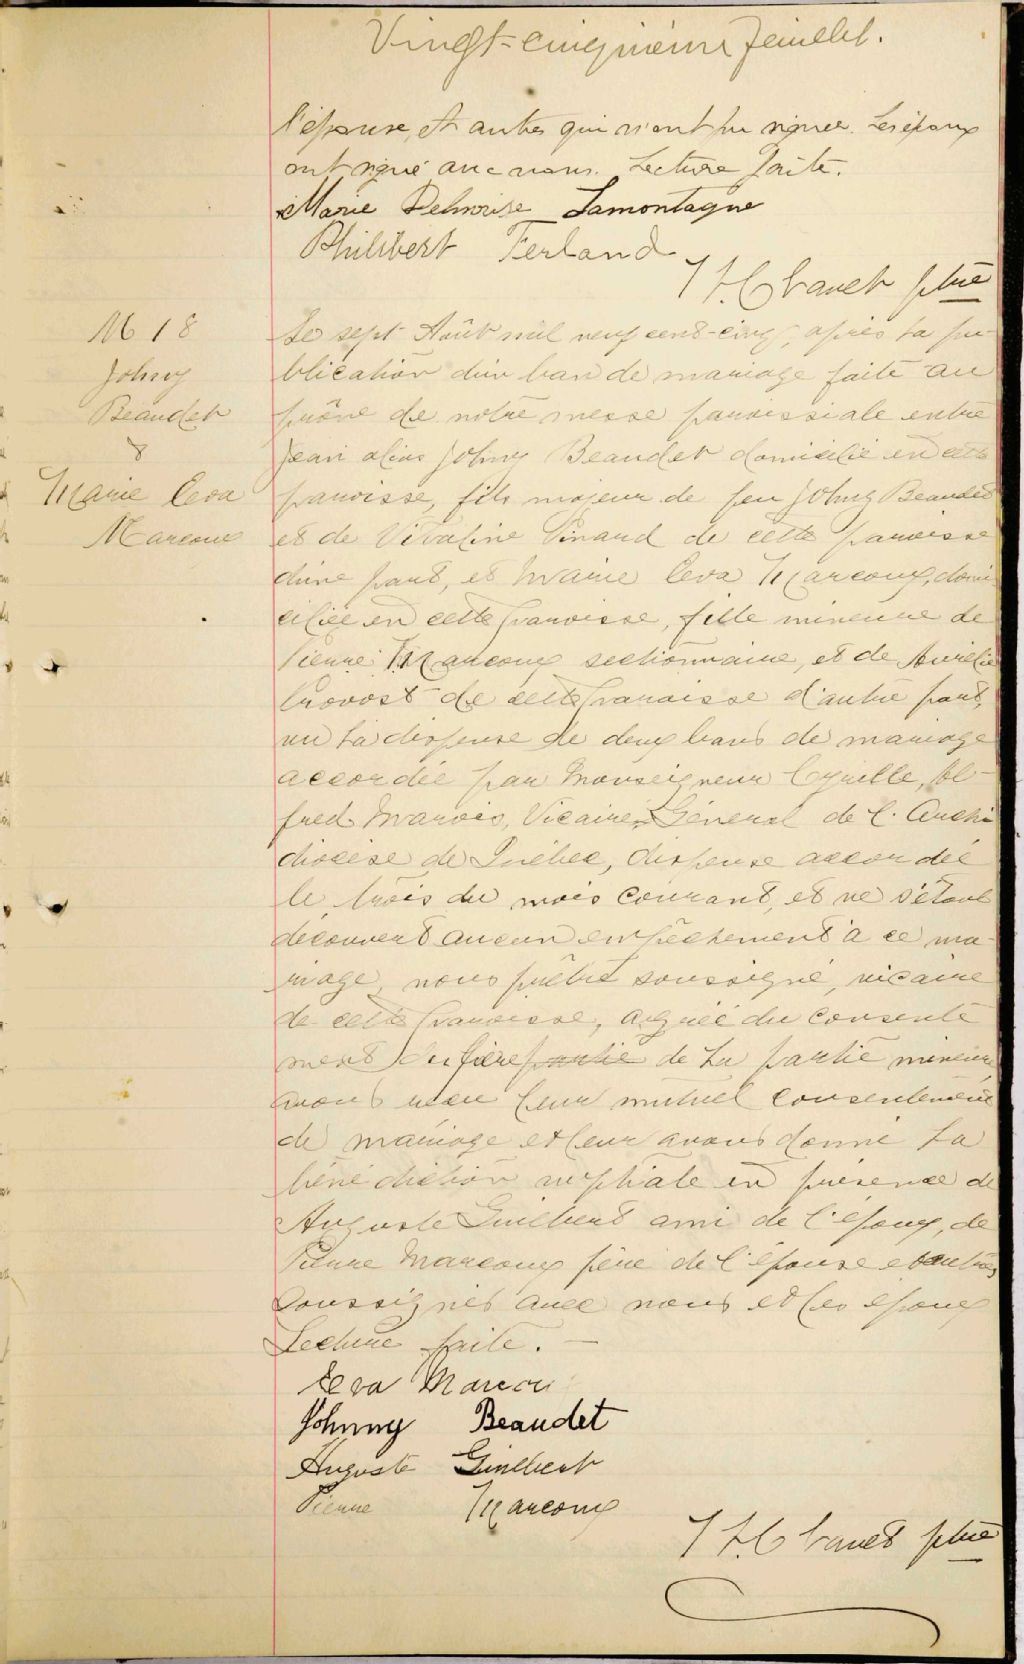 Vingt-cinquième feuillet.
l'épouse, et autres qui n'ont pu signer. Les époux
ont signé avec nous. Lecture faite.
Marie Delvoise Lamontagne
Philibert Ferland
ptre
M 18
Johny
Beaudet
&
Marie Eva
Marcoux
Le sept Août mil neuf cent-cinq, après la pu-
blication d'un ban de mariage faite au
prône de notre messe paroissiale entre
Jean alias Johny Beaudet domicilié en cette
paroisse, fils majeur de feu Johny Beaudet
et de Vitaline Pinard de cette paroisse
d'une part, et Marie Eva Marcoux, domi-
ciliée en cette paroisse, fille mineure de
Pierre Marcoux sectionnaire, et de Aurélie
Provost de cette paroisse d'autre part,
vu la dispense de deux bans de mariage
accordée par Monseigneur Cyrille, Al-
fred Marois, Vicaire Général de l'Archi
diocèse de Québec, dispense accordée
le trois du mois courant, et ne s'étant
découvert aucun empêchement à ce ma-
riage, nous prêtre soussigné, vicaire
de cette paroisse, du consente
ment du père partie de la partie mineure,
avons reçu leur mutuel consentement
de mariage et leur avons donné la
bénédiction nuptiale en présence de
Auguste Guilbert ami de l'époux, de
Pierre Marcoux père de l'épouse et autres
soussignés avec nous et les époux
Lecture faite. —
Eva Marcou
Johnny Beaudet
Auguste Guilbert
Pierre Marcoux
ptre